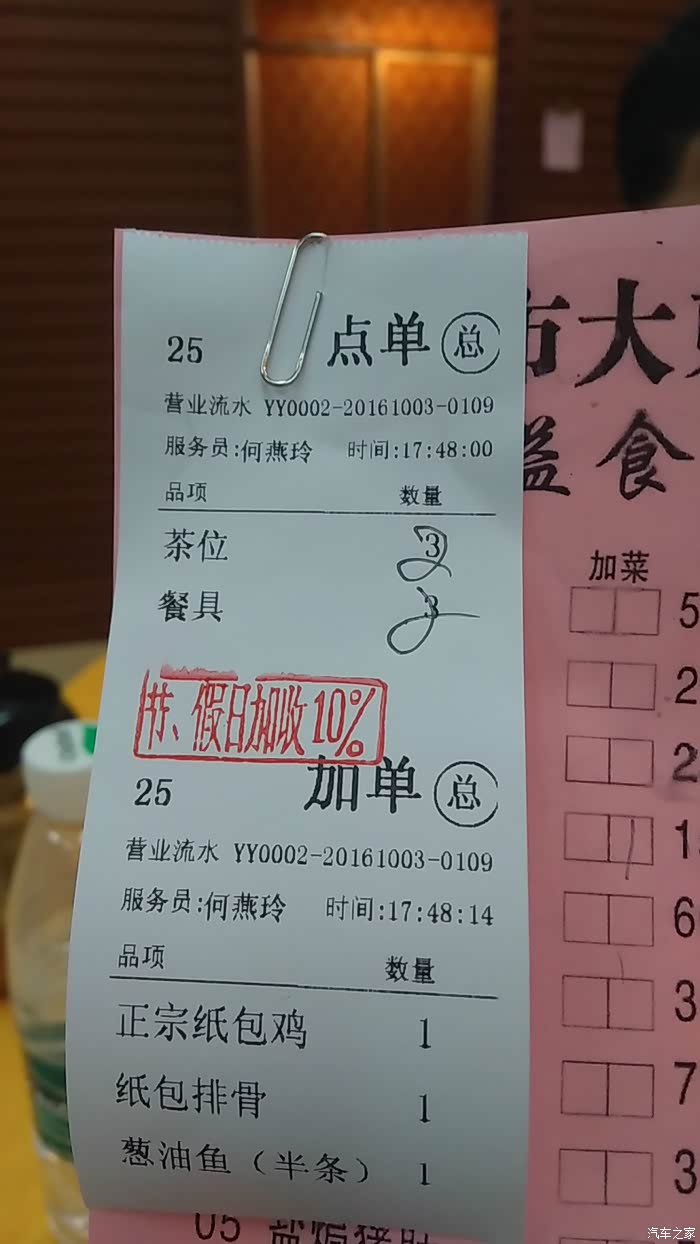 25 点单 总
营业流水 YY0002-20161003-0109
服务员:何燕玲 时间:17:48:00
品项 数量
茶位 3
餐具 3
节、假日加收10%
25 加单 总
营业流水 YY0002-20161003-0109
服务员:何燕玲 时间:17:48:14
品项 数量
正宗纸包鸡 1
纸包排骨 1
葱油鱼(半条) 1
大
益食
加菜
5
2
2
1
6
3
7
3
05
汽车之家